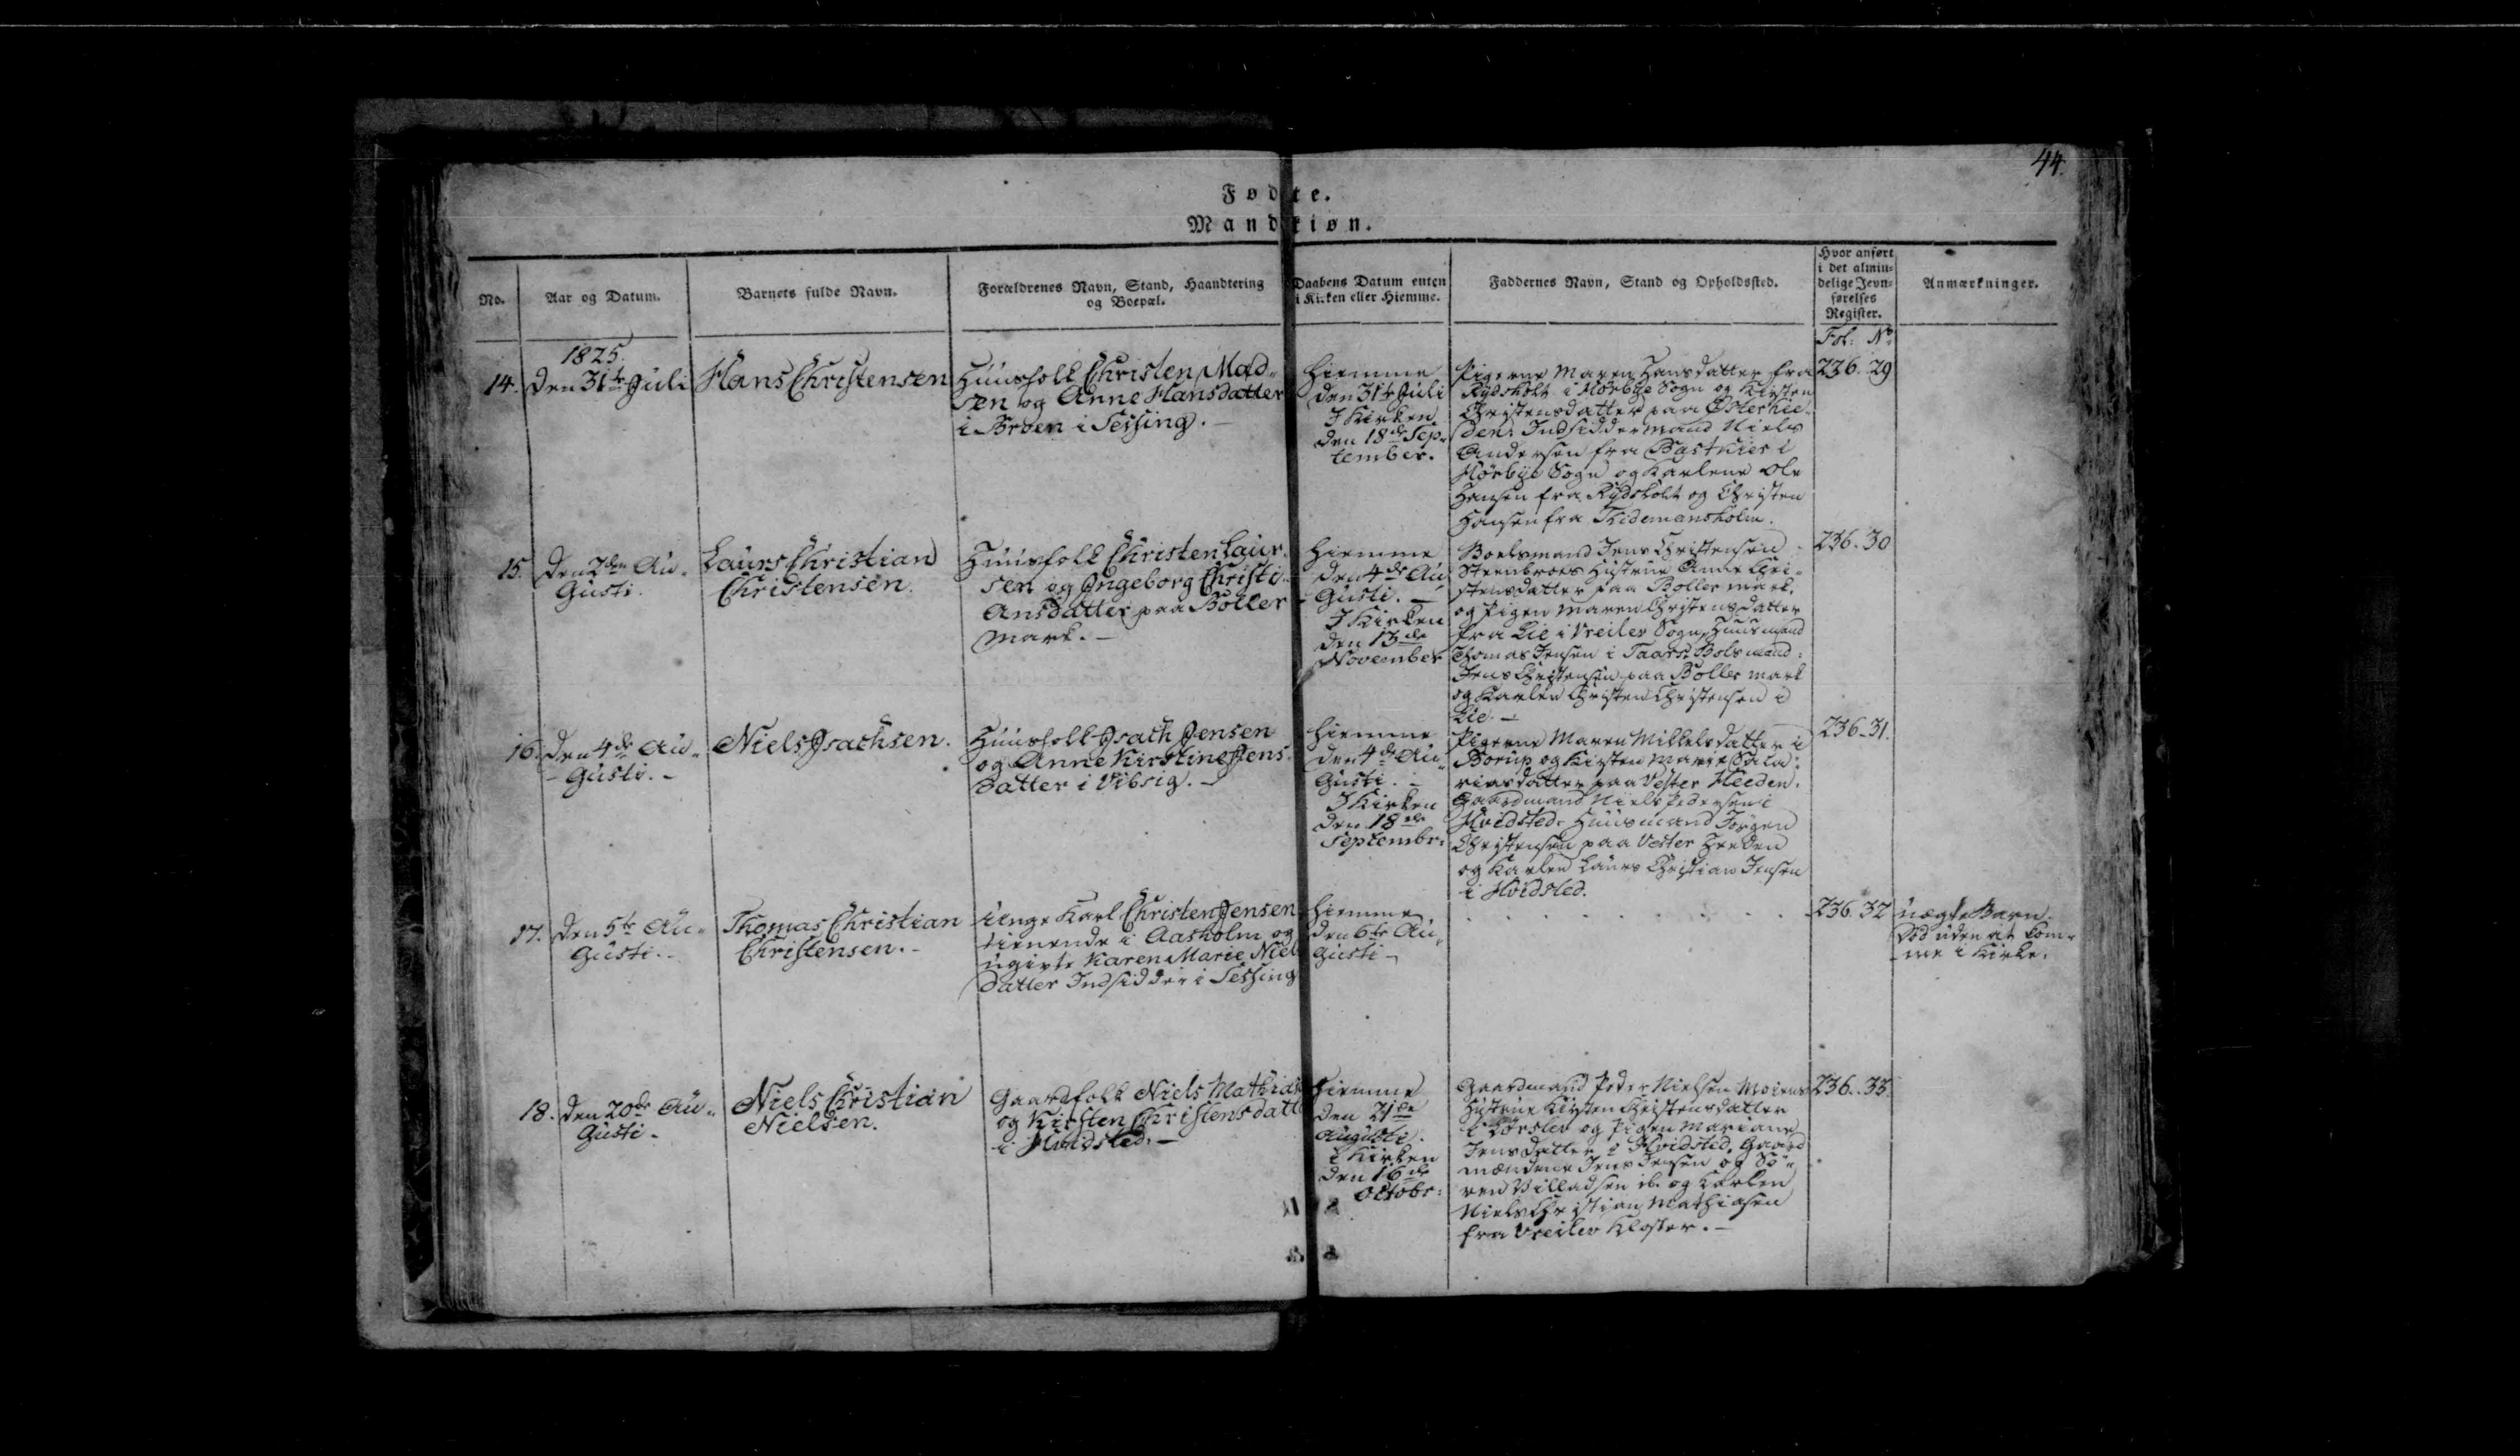 44.
Fødte.
Mandkiøn.
No.
Aar og Datum.
Barnets fulde Navn.
Forældrenes Navn, Stand, Haandtering
og Boepæl.
Daabens Datum enten
i Kirken eller Hiemme.
Faddernes Navn, Stand og Opholdssted.
Hvor anført
i det almin-
delige Jevn-
førelses
Register.
Anmærkninger.
Fol: No
1825.
14.
Den 31te Juli
Hans Christensen
Huusfolk Christen Mad-
sen og Anne Hansdatter
i Broen i Sessing.
Hiemme
den 31te Juli
I Kirken
den 18de Sep-
tember.
Pigerne Maren Hansdatter fra
Rydsholt i Hørbye Sogn og Kirsten
Christensdatter paa Østerhie-
den. Indsiddermand Niels
Andersen fra Bastkier i
Hørbye Sogn og Karlene Ole
Hansen fra Rydsholt og Christen
Hansen fra Tidemansholm.
236. 29
15.
Den 2den Au-
gusti.
Laurs Christian
Christensen.
Huusfolk Christen Laur-
sen og Ingeborg Christi-
ansdatter paa Boller
Mark. -
Hiemme
den 4de Au-
gusti. -
I Kirken
den 13de
November
Boelsmand Jens Christensen
Steenbroes Hustrue Anne Chri-
stensdatter paa Boller Mark.
og Pigen Maren Christensdatter
fra Lie i Vreilev Sogn, Huusmand
Thomas Jensen i Taars: Bolsmand
Jens Christensen paa Boller Mark
og Karlen Christen Christensen i
Lie. -
236. 30
16.
Den 4de Au-
gusti. -
Niels Isachsen.
Huusfolk Isach Jensen
og Anne Kirstine Jens-
datter i Vibsig. -
Hiemme
den 4de Au-
gusti. -
I Kirken
den 18de
Septembr:
Pigerne Maren Mikkelsdatter i
Borup og Kirsten Marie
datter paa Vester Heeden.
Gaardmand Niels Pedersen i
Hvidsted. Huusmand Jørgen
Christensen paa Vester Heeden
og Karlen Laurs Christian Jensen
i Hvidsted.
236. 31.
17.
Den 5te Au-
gusti. -
Thomas Christian
Christensen. -
Unge Karl Christen Jensen
tienende i Aasholm og
ugivte Karen Marie Niels
datter Indsidder i Sessing
Hiemme
den 6te Au-
gusti -
236. 32
uægte Barn.
Død uden at kom-
me i Kirke.
18.
Den 20de Au-
gusti -
Niels Christian
Nielsen.
Gaardfolk Niels Mathias
og Kirsten Christensdatt
i Hvidsted. -
Hiemme
den 21de
Augusti.
I Kirken
den 16de
Octobr:
Gaardmand Peder Nielsen
Hustrue Kirsten Christensdatter
i Lørslev og Pigen Mariane
Jensdatter i Hvidsted. Gaard
mændene Jens Jensen og Sø-
ren Villadsen ib. og Karlen
Niels Christian Mathiasen
fra Vreilev Kloster. -
236. 33.